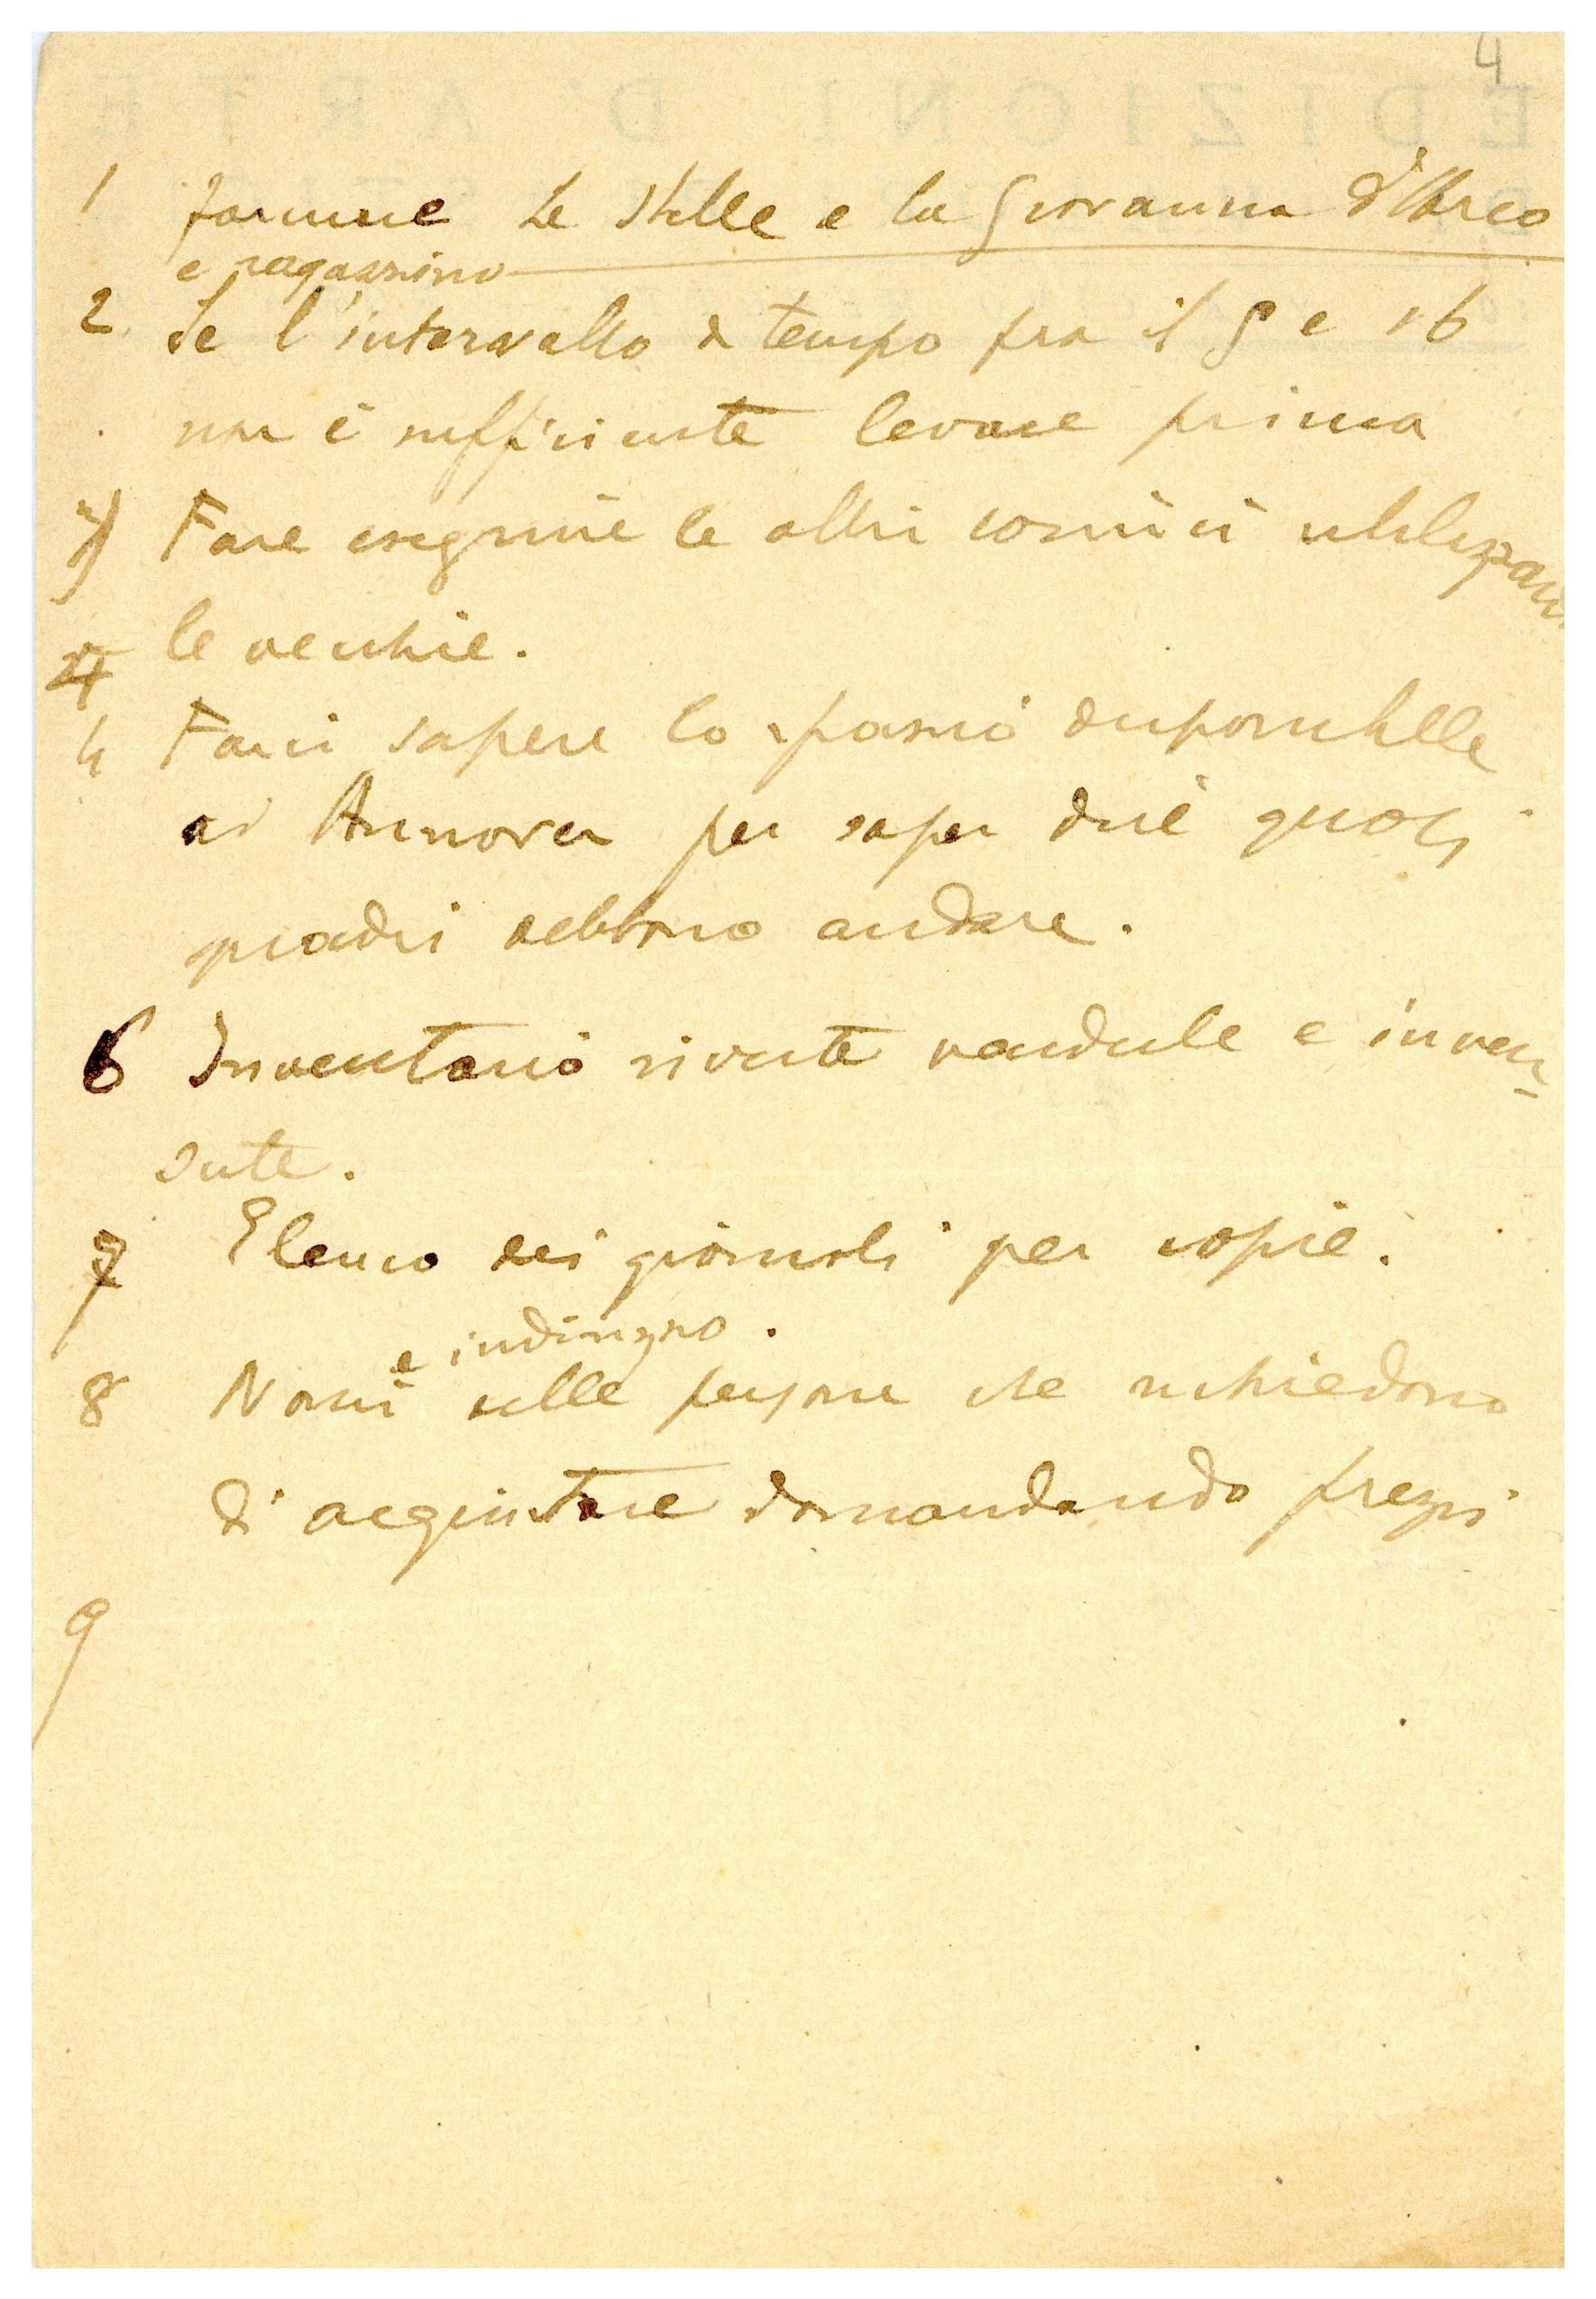 4
1 Le Stelle e la Giovanna d'Arco
e ragazzino
2 Se l'intervallo di tempo fra il 8 e 16
non è sufficiente levare prima
3) Fare eseguire le altri cornici utilizzan
le vecchie.
4 Farci sapere lo spazio disponibile
ad Annover per saper dire quali
quadri debbono andare.
6 Inventario riviste vendute e inven-
dute.
7 Elenco dei giornali per copie.
e indirizzo.
8 Nomi delle persone che richiedono
di acquistare domandando prezzi
9